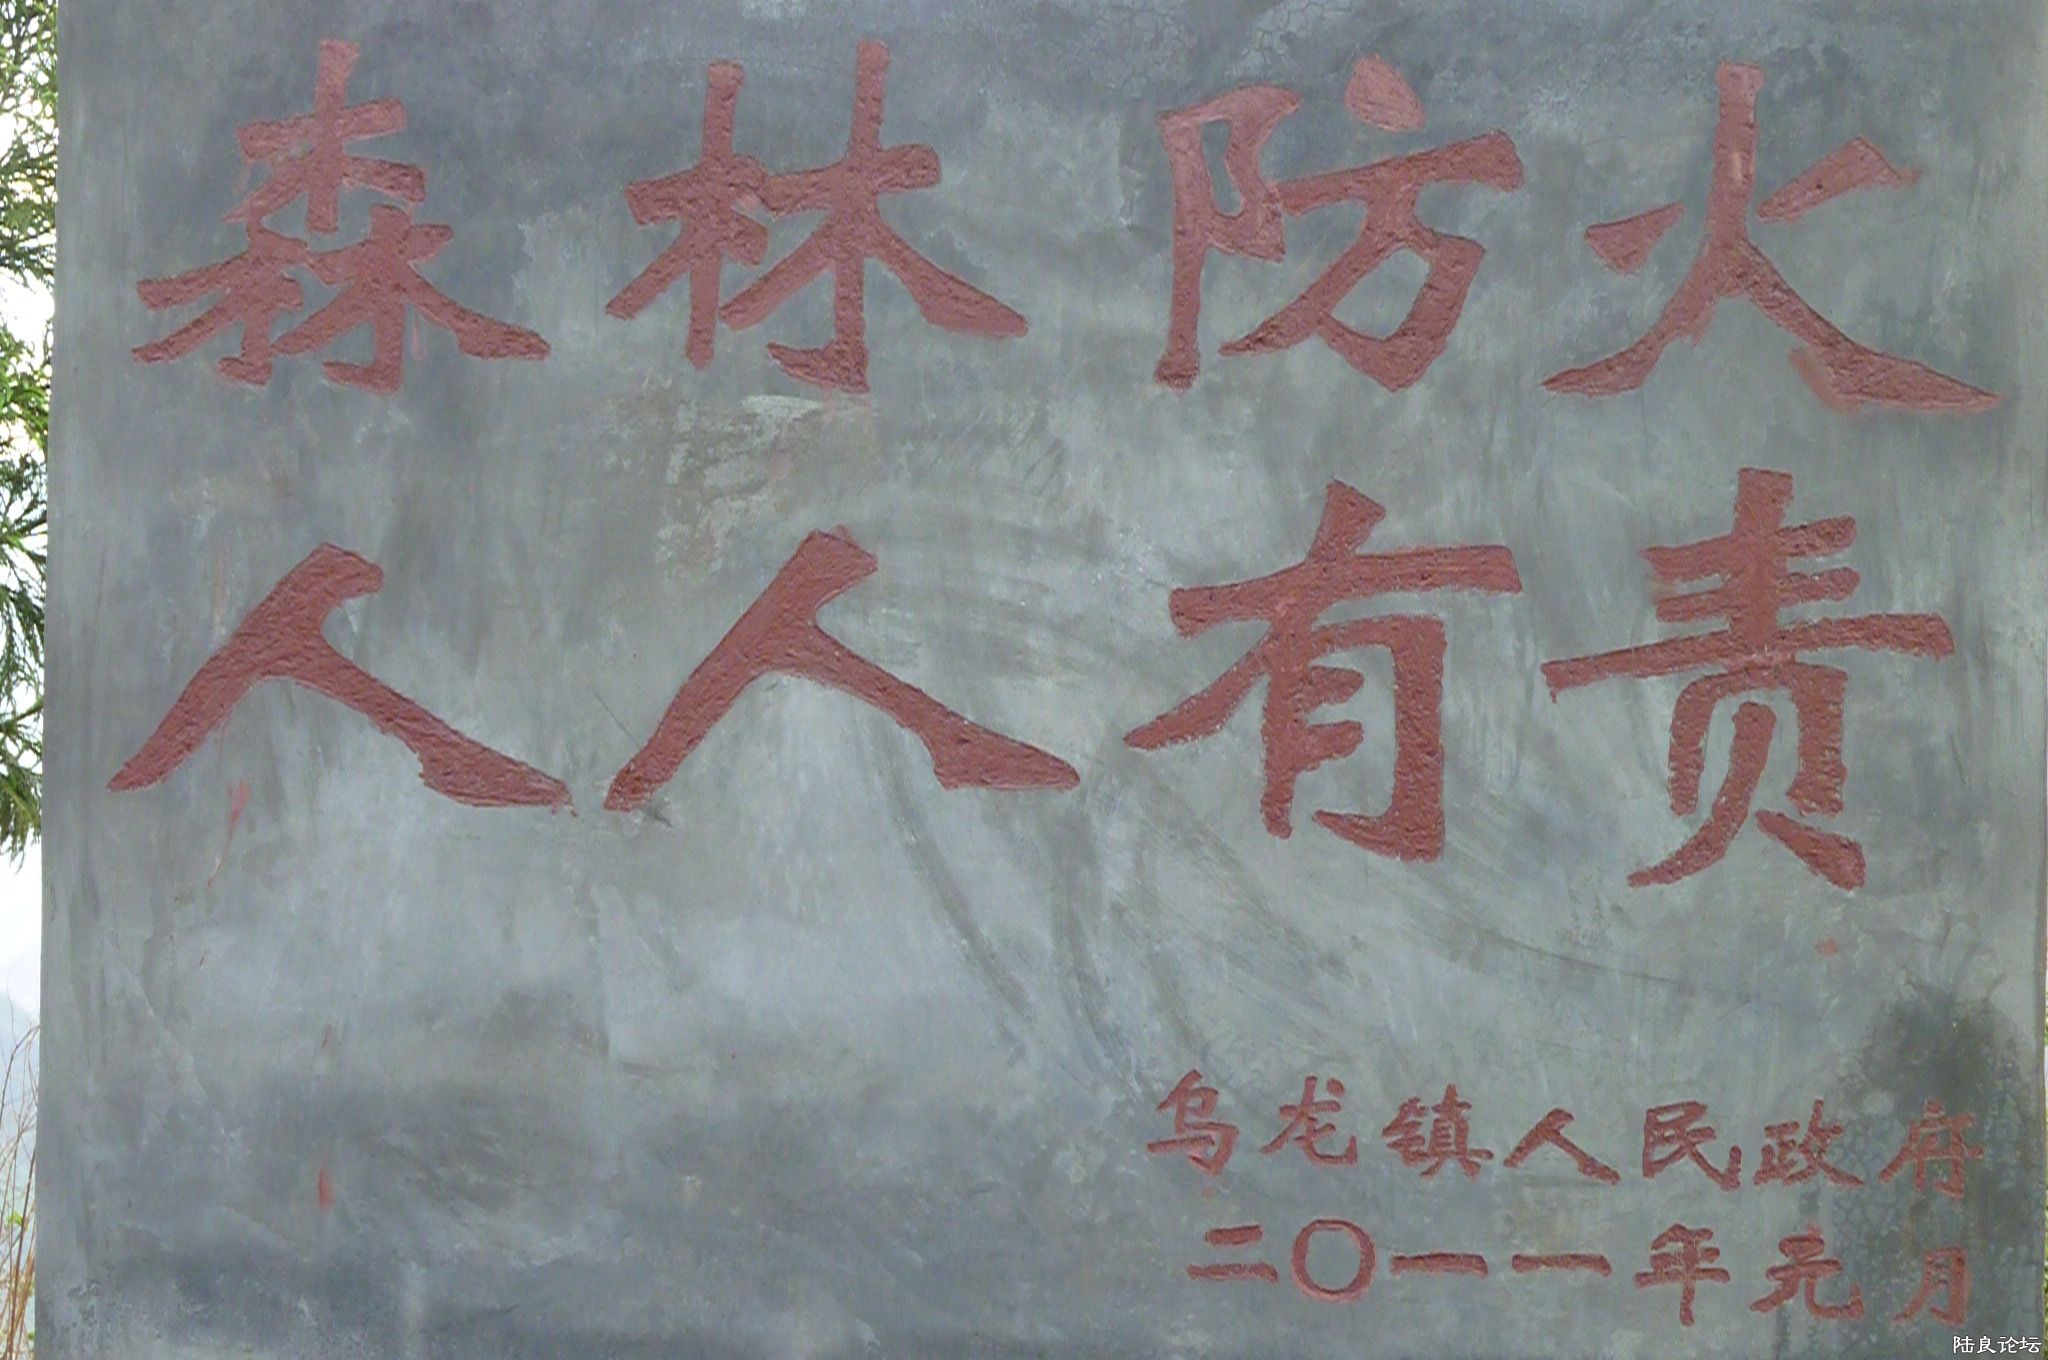 森林防火
人人有责
乌龙镇人民政府
二〇一一年元月
陆良论坛